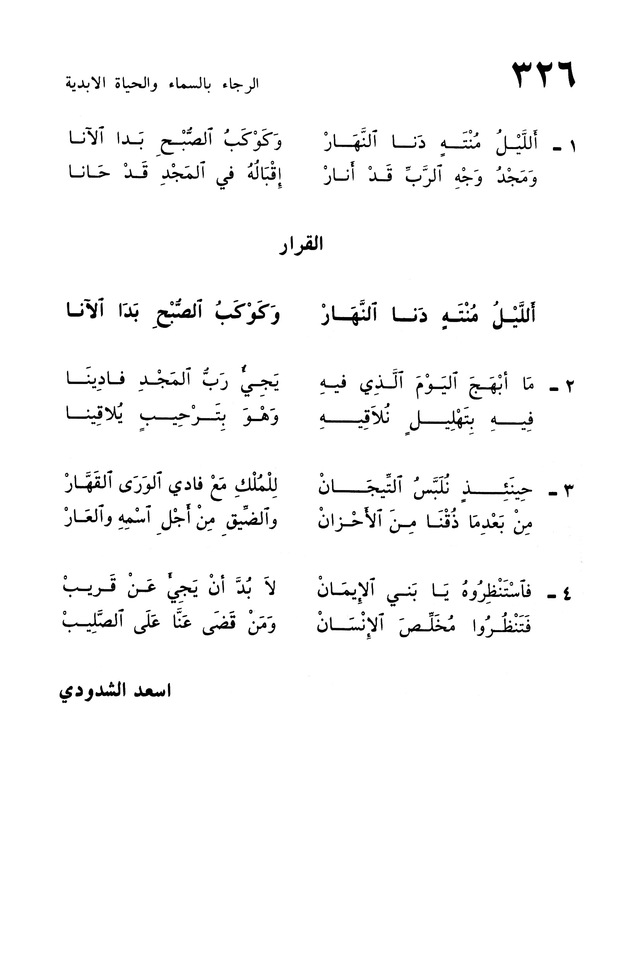 ٣٢٦
الرجاء بالسماء والحياة الابدية
١ - أَللَّيْلُ مُنْتَهٍ دَنا ٱلنَّهَارْ وَكَوْكَبُ ٱلصُّبْحِ بَدا ٱلآنا
وَمَجْدُ وَجْهِ ٱلرَّبِّ قَدْ أَنارْ إِقْبَالُهُ في ٱلمَجْدِ قَدْ حَانا
القرار
أَللَّيْلُ مُنْتَهٍ دَنا ٱلنَّهَارْ وَكَوْكَبُ ٱلصُّبْحِ بَدَا ٱلآنا
٢ - مَا أَبْهَجَ ٱليَوْمَ ٱلَّذِي فيهِ يَجِيْ رَبُّ ٱلمَجْدِ فادِينَا
فِيهِ بِتَهْلِيلٍ نُلاَقِيهِ وَهْوَ بِتَرْحِيبٍ يُلاقِينا
٣ - حِينَئِذٍ نُلَبَّسُ ٱلتِّيجَانْ لِلْمُلْكِ مَعْ فادي ٱلوَرَى ٱلقَهَّارْ
مِنْ بَعْدِمَا ذُقْنَا مِنَ ٱلأَحْزانْ وٱلضِّيقِ مِنْ أَجْلِ ٱسْمِهِ وٱلعَارْ
٤ - فَٱسْتَنْظِرُوهُ يَا بَني ٱلإِيمَانْ لاَ بُدَّ أَنْ يَجِيْ عَنْ قَرِيبْ
فَتَنْظُرُوا مُخَلِّصَ ٱلإِنْسَانْ وَمَنْ قَضَى عَنَّا عَلَى ٱلصَّلِيبْ
اسعد الشدودي